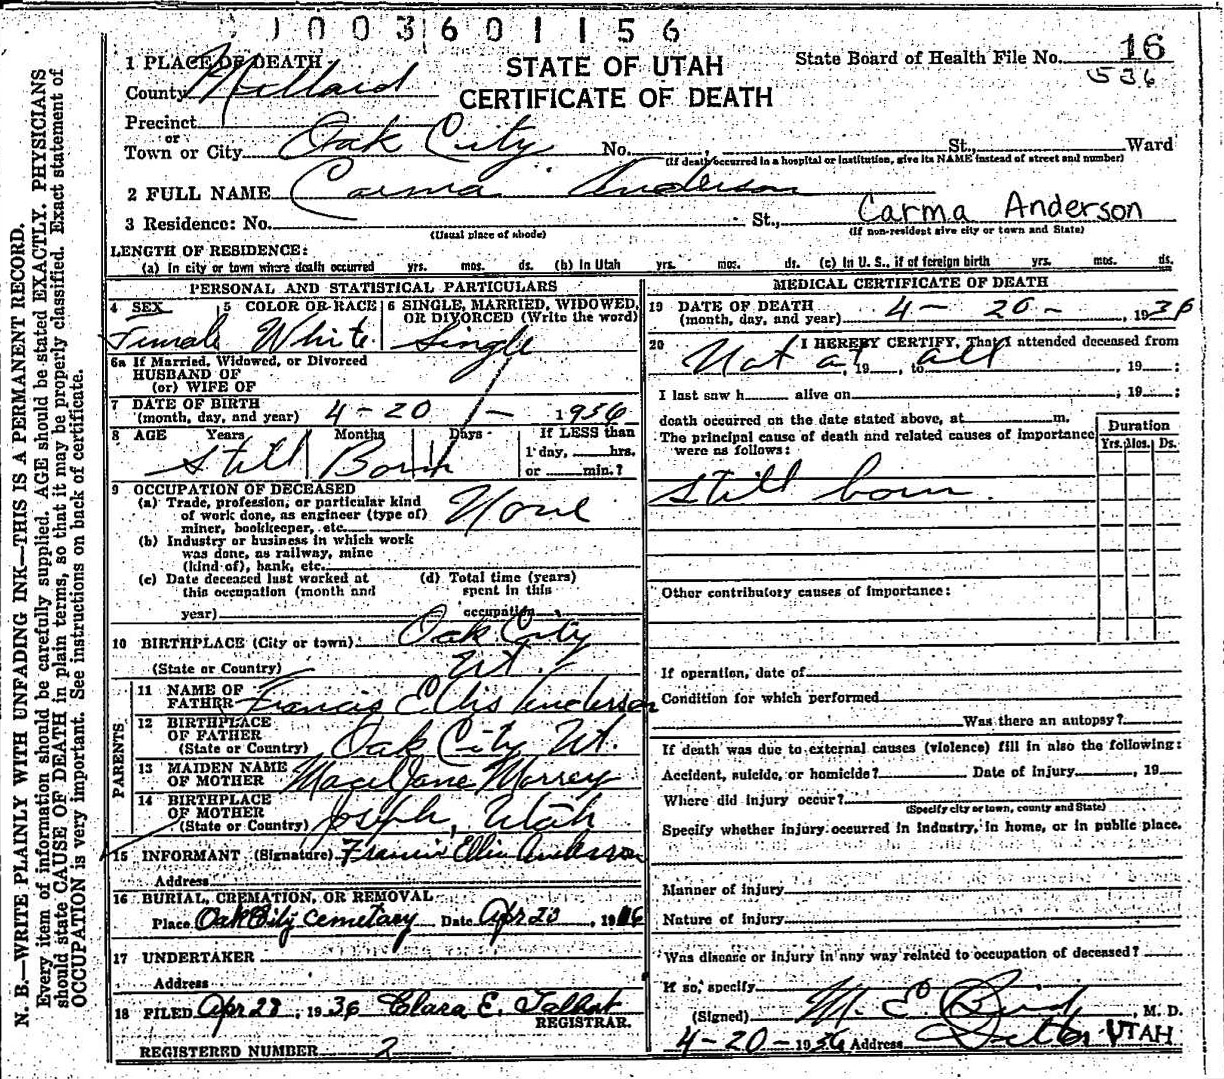 1003601156
STATE OF UTAH
CERTIFICATE OF DEATH
State Board of Health File No. 16
536
1 PLACE OF DEATH
County Millard
Precinct
or
Town or City Oak City No. , St., Ward
(If death occurred in a hospital or institution, give its NAME instead of street and number)
2 FULL NAME Carma Anderson
3 Residence: No. St., Carma Anderson
(Usual place of abode) (If non-resident give city or town and State)
LENGTH OF RESIDENCE:
(a) In city or town where death occurred yrs. mos. ds. (b) In Utah yrs. mos. ds. (c) In U. S., if of foreign birth yrs. mos. ds.
PERSONAL AND STATISTICAL PARTICULARS
4 SEX 5 COLOR OR RACE 6 SINGLE, MARRIED, WIDOWED,
OR DIVORCED (Write the word)
Female White Single
6a If Married, Widowed, or Divorced
HUSBAND OF
(or) WIFE OF
7 DATE OF BIRTH
(month, day, and year) 4-20- 1936
8 AGE Years Months Days If LESS than
1 day, hrs.
or min.?
Still Born
9 OCCUPATION OF DECEASED
(a) Trade, profession, or particular kind
of work done, as engineer (type of)
miner, bookkeeper, etc. None
(b) Industry or business in which work
was done, as railway, mine
(kind of), bank, etc.
(c) Date deceased last worked at (d) Total time (years)
this occupation (month and spent in this
year) occupation
10 BIRTHPLACE (City or town) Oak City
(State or Country) Ut.
PARENTS
11 NAME OF
FATHER Francis Ellis Anderson
12 BIRTHPLACE
OF FATHER
(State or Country) Oak City Ut.
13 MAIDEN NAME
OF MOTHER Jane
14 BIRTHPLACE
OF MOTHER
(State or Country) Joseph, Utah
15 INFORMANT (Signature) Francis Ellis Anderson
Address
16 BURIAL, CREMATION, OR REMOVAL
Place Oak City Cemetary Date Apr 20, 1936
17 UNDERTAKER
Address
18 FILED Apr 28, 1936 Clara E. Talbot
REGISTRAR.
REGISTERED NUMBER 2
MEDICAL CERTIFICATE OF DEATH
19 DATE OF DEATH
(month, day, and year) 4-20-, 1936
20 I HEREBY CERTIFY, That I attended deceased from
Not at, 19, to all, 19;
I last saw h alive on, 19;
death occurred on the date stated above, at m.
The principal cause of death and related causes of importance
were as follows:
Duration
Yrs. Mos. Ds.
Still born.
Other contributory causes of importance:
If operation, date of
Condition for which performed
Was there an autopsy?
If death was due to external causes (violence) fill in also the following:
Accident, suicide, or homicide? Date of injury, 19
Where did injury occur?
(Specify city or town, county and State)
Specify whether injury occurred in industry, in home, or in public place.
Manner of injury
Nature of injury
Was disease or injury in any way related to occupation of deceased?
If so, specify
(Signed) M. E. Bird, M. D.
4-20-1936 Address Delta UTAH
N. B.—WRITE PLAINLY WITH UNFADING INK—THIS IS A PERMANENT RECORD.
Every item of information should be carefully supplied. AGE should be stated EXACTLY. PHYSICIANS
should state CAUSE OF DEATH in plain terms, so that it may be properly classified. Exact statement of
OCCUPATION is very important. See instructions on back of certificate.